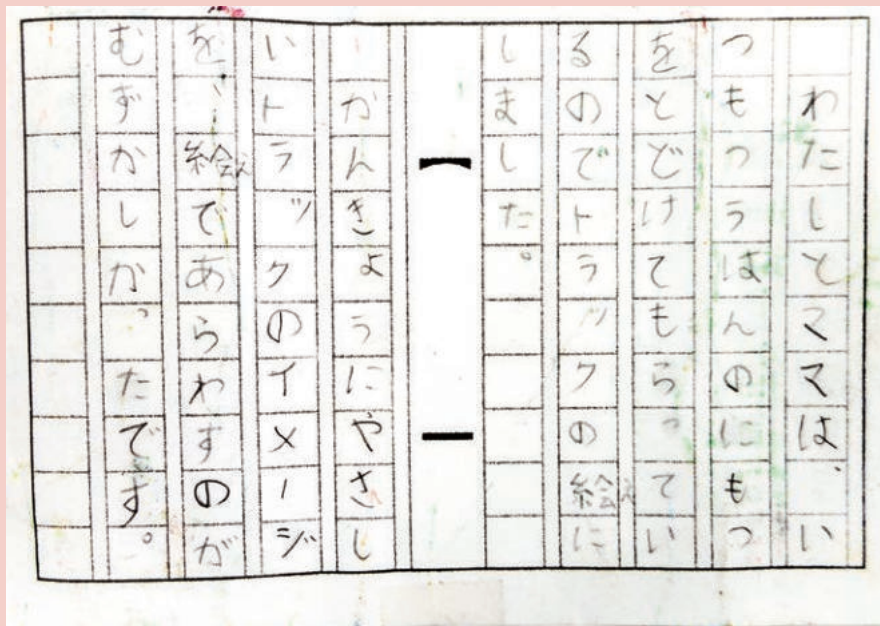 わたしとママは、い
つもつうはんのにもつ
をとどけてもらってい
るのでトラックの絵え に
しました。
かんきょうにやさし
いトラックのイメージ
を、絵え であらわすのが
むずかしかったです。